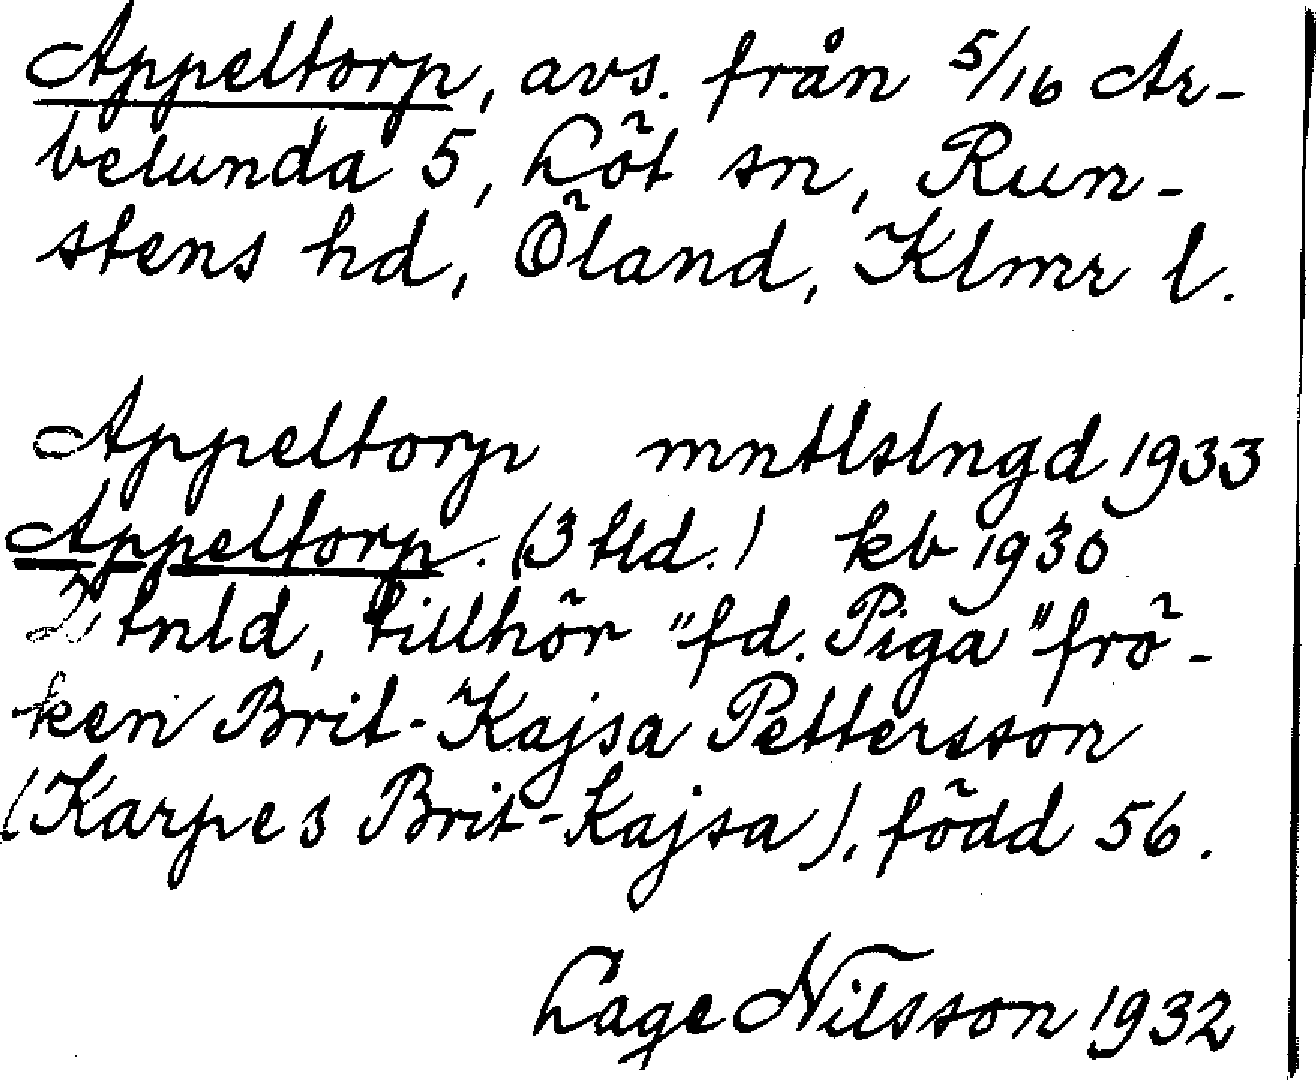 Appeltorp, avs. från 5/16 Ar-
belunda 5, Löt sn, Run-
stens hd, Öland, Klmr l.
Appeltorp mntlslngd 1933
Appeltorp. (3 tld.) kb 1930
2 tnld, tillhör "fd. Piga" frö-
ken Brit-Kajsa Pettersson
(Karpes Brit-Kajsa), född 56.
Lage Nilsson 1932